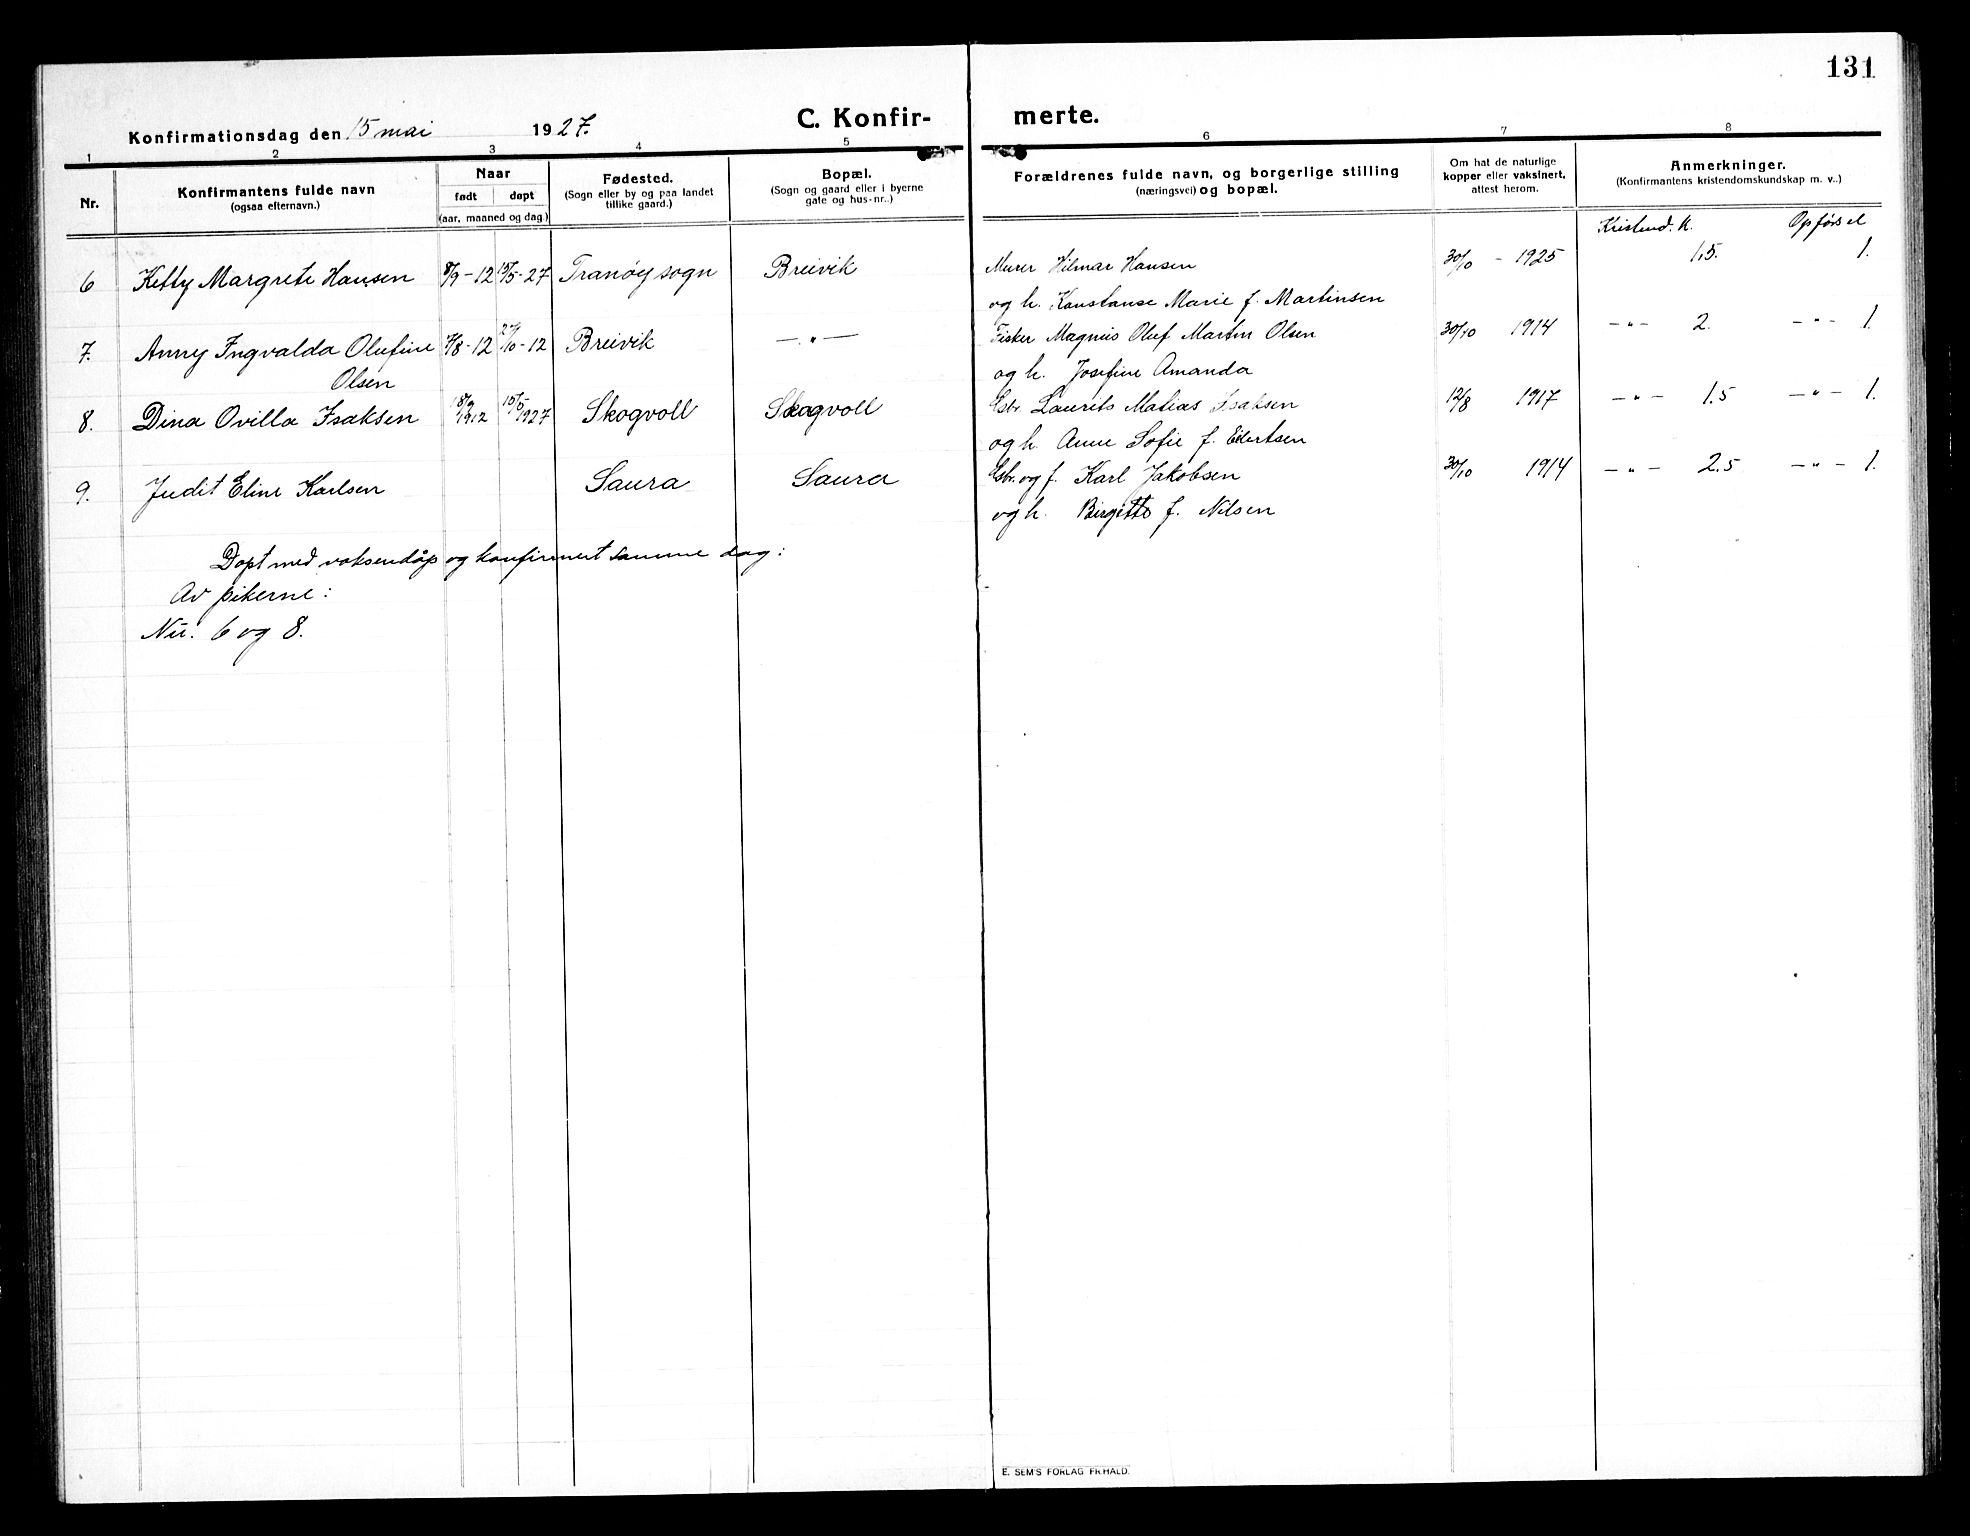 131
C. Konfirmerte.
Konfirmationsdag den 15 mai 1927.
1 2 3 4 5 6 7 8
Nr.
Konfirmantens fulde navn
(ogsaa efternavn.)
Naar
født døpt
(aar, maaned og dag.)
Fødested.
(Sogn eller by og paa landet
tillike gaard.)
Bopæl.
(Sogn og gaard eller i byerne
gate og hus-nr..)
Forældrenes fulde navn, og borgerlige stilling
(næringsvei) og bopæl.
Om hat de naturlige
kopper eller vaksinert,
attest herom.
Anmerkninger.
(Konfirmantens kristendomskundskap m. v..)
Kristend. k. Opførsel
6 Ketty Margrete Hansen 8/9-12 15/5-27 Tranøy sogn Breivik Murer Hilmar Hansen 30/10 - 1925 1,5. 1.
og h. Konstanse Marie f. Martinsen
7. Anny Ingvalda Olufine 7/8-12 27/10-12 Breivik — " — Fisker Magnus Oluf Martin Olsen 30/10 1914 — " — 2. — " — 1.
Olsen og h. Josefine Amanda
8. Dina Ovilla Isaksen 18/9 1912 15/5 1927 Skogvoll Skogvoll Gbr. Laurits Matias Isaksen 12/8 1917 — " — 1.5 — " — 1.
og h. Anne Sofie f. Edertsen
9. Judit Eline Karlsen Saura Saura Gbr. og f. Karl Jakobsen 30/10 1914 — " — 2.5 — " — 1.
og h. Birgitte f. Nilsen
Døpt med voksendåp og konfirmert samme dag:
Av pikerne:
Nr. 6 og 8.
E. SEM'S FORLAG FR.HALD.